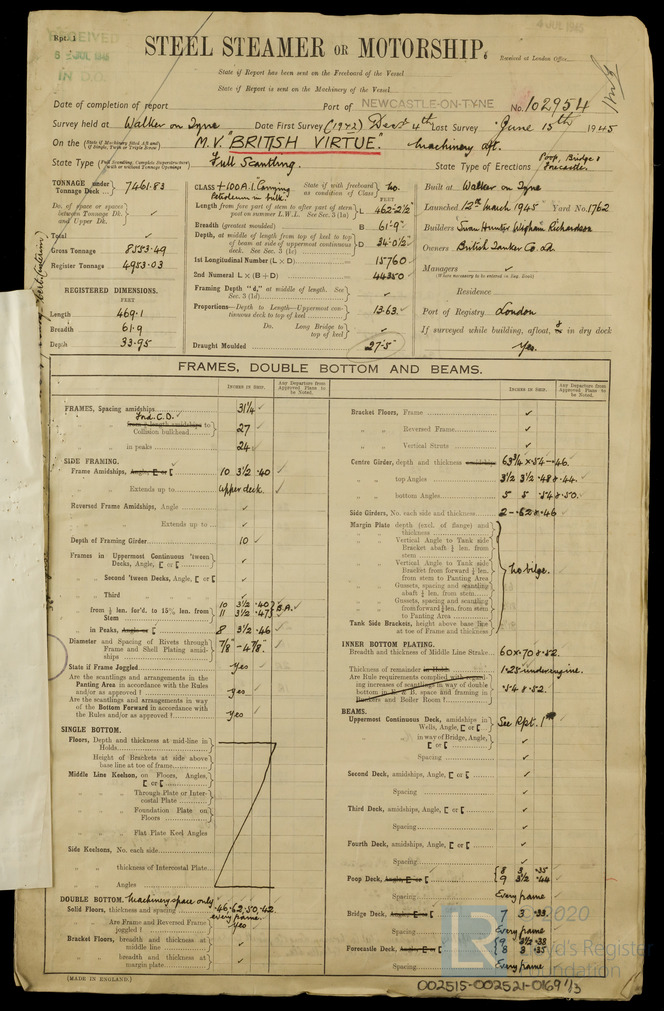 Rpt. 1
RECEIVED
IN D.O.
STEEL STEAMER OR MOTORSHIP
Received at London Office
State if Report has been sent on the Freeboard of the Vessel
State if Report is sent on the Machinery of the Vessel
Date of completion of report Port of NEWCASTLE-ON-TYNE No. 102954
Survey held at Walker on Tyne Date First Survey (1942) Decr 4th Last Survey June 15th 1945
On the (State if Machinery fitted Aft and if Single, Twin or Triple Screw) M.V. "BRITISH VIRTUE." Machinery aft.
State Type (Full Scantling, Complete Superstructure with or without Tonnage Openings) Full Scantling. State Type of Erections Poop, Bridge & Forecastle.
TONNAGE under Tonnage Deck 7461.83
No. of space or spaces between Tonnage Dk. and Upper Dk.
Total
Gross Tonnage 8553.49
Register Tonnage 4953.03
REGISTERED DIMENSIONS.
FEET
Length 469.1
Breadth 61.9
Depth 33.95
CLASS +100A.1. "Carrying Petroleum in bulk" State if with freeboard as condition of Class No.
Length from fore part of stem to after part of stern post on summer L.W.L. See Sec. 3 (1a) L 462'-2½"
Breadth (greatest moulded) B 61'-9"
Depth, at middle of length from top of keel to top of beam at side of uppermost continuous deck. See Sec. 3 (1c) D 34'-0½"
1st Longitudinal Number (L × D) 15760
2nd Numeral L × (B + D) 44350
Framing Depth "d," at middle of length. See Sec. 3 (1d)
Proportions—Depth to Length—Uppermost continuous deck to top of keel 13.63
Do. Long Bridge to top of keel
Draught Moulded 27-5
Built at Walker on Tyne
Launched 12th March 1945 Yard No. 1762
Builders Swan Hunter Wigham Richardson
Owners British Tanker Co. Ld.
Managers
(Where necessary to be entered in Reg. Book)
Residence
Port of Registry London
If surveyed while building, afloat, & in dry dock
Yes.
FRAMES, DOUBLE BOTTOM AND BEAMS.
INCHES IN SHIP.
Any Departure from Approved Plans to be Noted.
INCHES IN SHIP.
Any Departure from Approved Plans to be Noted.
FRAMES, Spacing amidships 31¼
Collision bulkhead 27
in peaks 24
SIDE FRAMING.
Frame Amidships, Angle, E or [ 10 3½ .40
Extends up to upper deck.
Reversed Frame Amidships, Angle
Extends up to
Depth of Framing Girder 10
Frames in Uppermost Continuous 'tween Decks, Angle, [ or [
Second 'tween Decks, Angle, [ or [
Third
from ½ len. for'd. to 15% len. from Stem 10 3½ .40 11 3½ .47 B.A.
in Peaks, Angle or [ 8 3½ .46
Diameter and Spacing of Rivets through Frame and Shell Plating amidships 7/8" - 4 7/8"
State if Frame Joggled yes
Are the scantlings and arrangements in the Panting Area in accordance with the Rules and/or as approved? yes
Are the scantlings and arrangements in way of the Bottom Forward in accordance with the Rules and/or as approved? yes
SINGLE BOTTOM.
Floors, Depth and thickness at mid-line in Holds
Height of Brackets at side above base line at toe of frame
Middle Line Keelson, on Floors, Angles, [ or [
Through Plate or Intercostal Plate
Foundation Plate on Floors
Flat Plate Keel Angles
Side Keelsons, No. each side
thickness of Intercostal Plate
Angles
DOUBLE BOTTOM. Machinery space only
Solid Floors, thickness and spacing .46 .62 .50 .42 every frame
Are Frame and Reversed Frame joggled? Yes
Bracket Floors, breadth and thickness at middle line
breadth and thickness at margin plate
Bracket Floors, Frame
Reversed Frame
Vertical Struts
Centre Girder, depth and thickness amidships 63¾ × .54 - .46
top Angles 3½ 3½ .48 & .44
bottom Angles 5 5 .54 & .50
Side Girders, No. each side and thickness 2 - .62 & .46
Margin Plate depth (excl. of flange) and thickness
Vertical Angle to Tank side Bracket abaft ¼ len. from stem
Vertical Angle to Tank side Bracket from forward ¼ len. from stem to Panting Area
Gussets, spacing and scantling abaft ¼ len. from stem
Gussets, spacing and scantling from forward ¼ len. from stem to Panting Area
Tank Side Brackets, height above base line at toe of Frame and thickness
No bilge.
INNER BOTTOM PLATING.
Breadth and thickness of Middle Line Strake 60 × .70 & .52
Thickness of remainder in Hold 1.25 under engine. .54 & .52
Are Rule requirements complied with regarding increases of scantlings in way of double bottom in E. & B. space and framing in Bunkers and Boiler Room?
BEAMS.
Uppermost Continuous Deck, amidships in Wells, Angle, [ or [ See Rpt. 1*
in way of Bridge, Angle, [ or [
Spacing
Second Deck, amidships, Angle, [ or [
Spacing
Third Deck, amidships, Angle, [ or [
Spacing
Fourth Deck, amidships, Angle, [ or [
Spacing
Poop Deck, Angle, E or [ 8 3 .35 9 3½ .44
Spacing Every frame
Bridge Deck, Angle, E or [ 7 3 .33
Spacing Every frame
Forecastle Deck, Angle, E or [ 9 3½ .38 8 3 .35
Spacing Every frame
(MADE IN ENGLAND.)
LR © 2020
Lloyd's Register
Foundation
002515-002521-0169 1/3